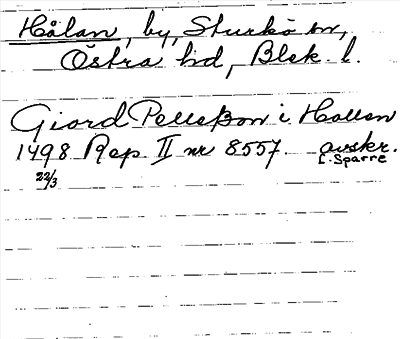 Hålan, by, Sturkö sn,
Östra hd, Blek. l.
Giord Pellesson i Hallan
1498 Rep. II nr 8557 avskr.
22/3 L. Sparre